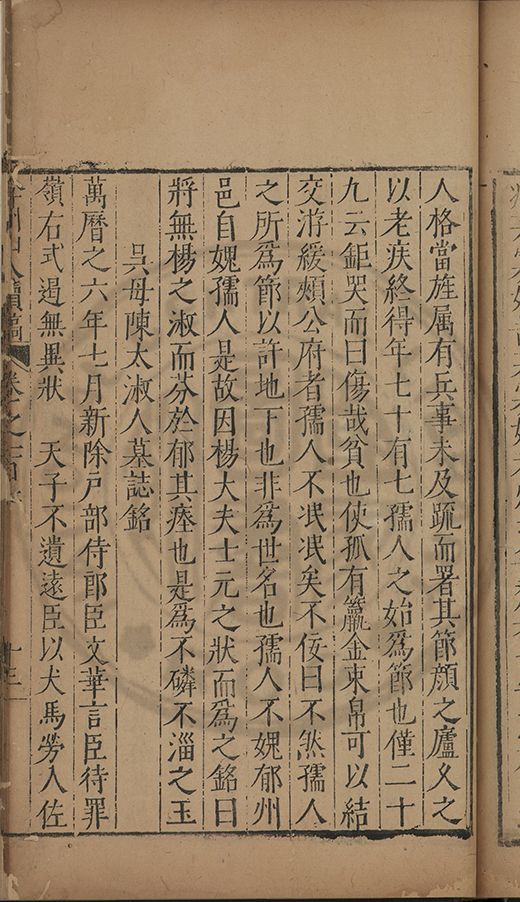 人格當旌属有兵事未及疏而署其節顏之廬乂之
以老疾終得年七十有七孺人之始爲節也僅二十
九云鉅哭而曰傷哉貧也使孤有籯金束帛可以結
交游緩頰公府者孺人不泯泯矣不佞曰不然孺人
之所爲節以許地下也非爲世名也孺人不媿郁州
邑自媿孺人是故因楊大夫士元之狀而爲之銘曰
將無楊之淑而芬於郁其瘞也是爲不磷不淄之玉
吳母陳太淑人墓誌銘
萬曆之六年七月新除戸部侍郎臣文華言臣待罪
嶺右式遏無異狀 天子不遺遠臣以犬馬勞入佐
山人續稿 卷之一百 十三